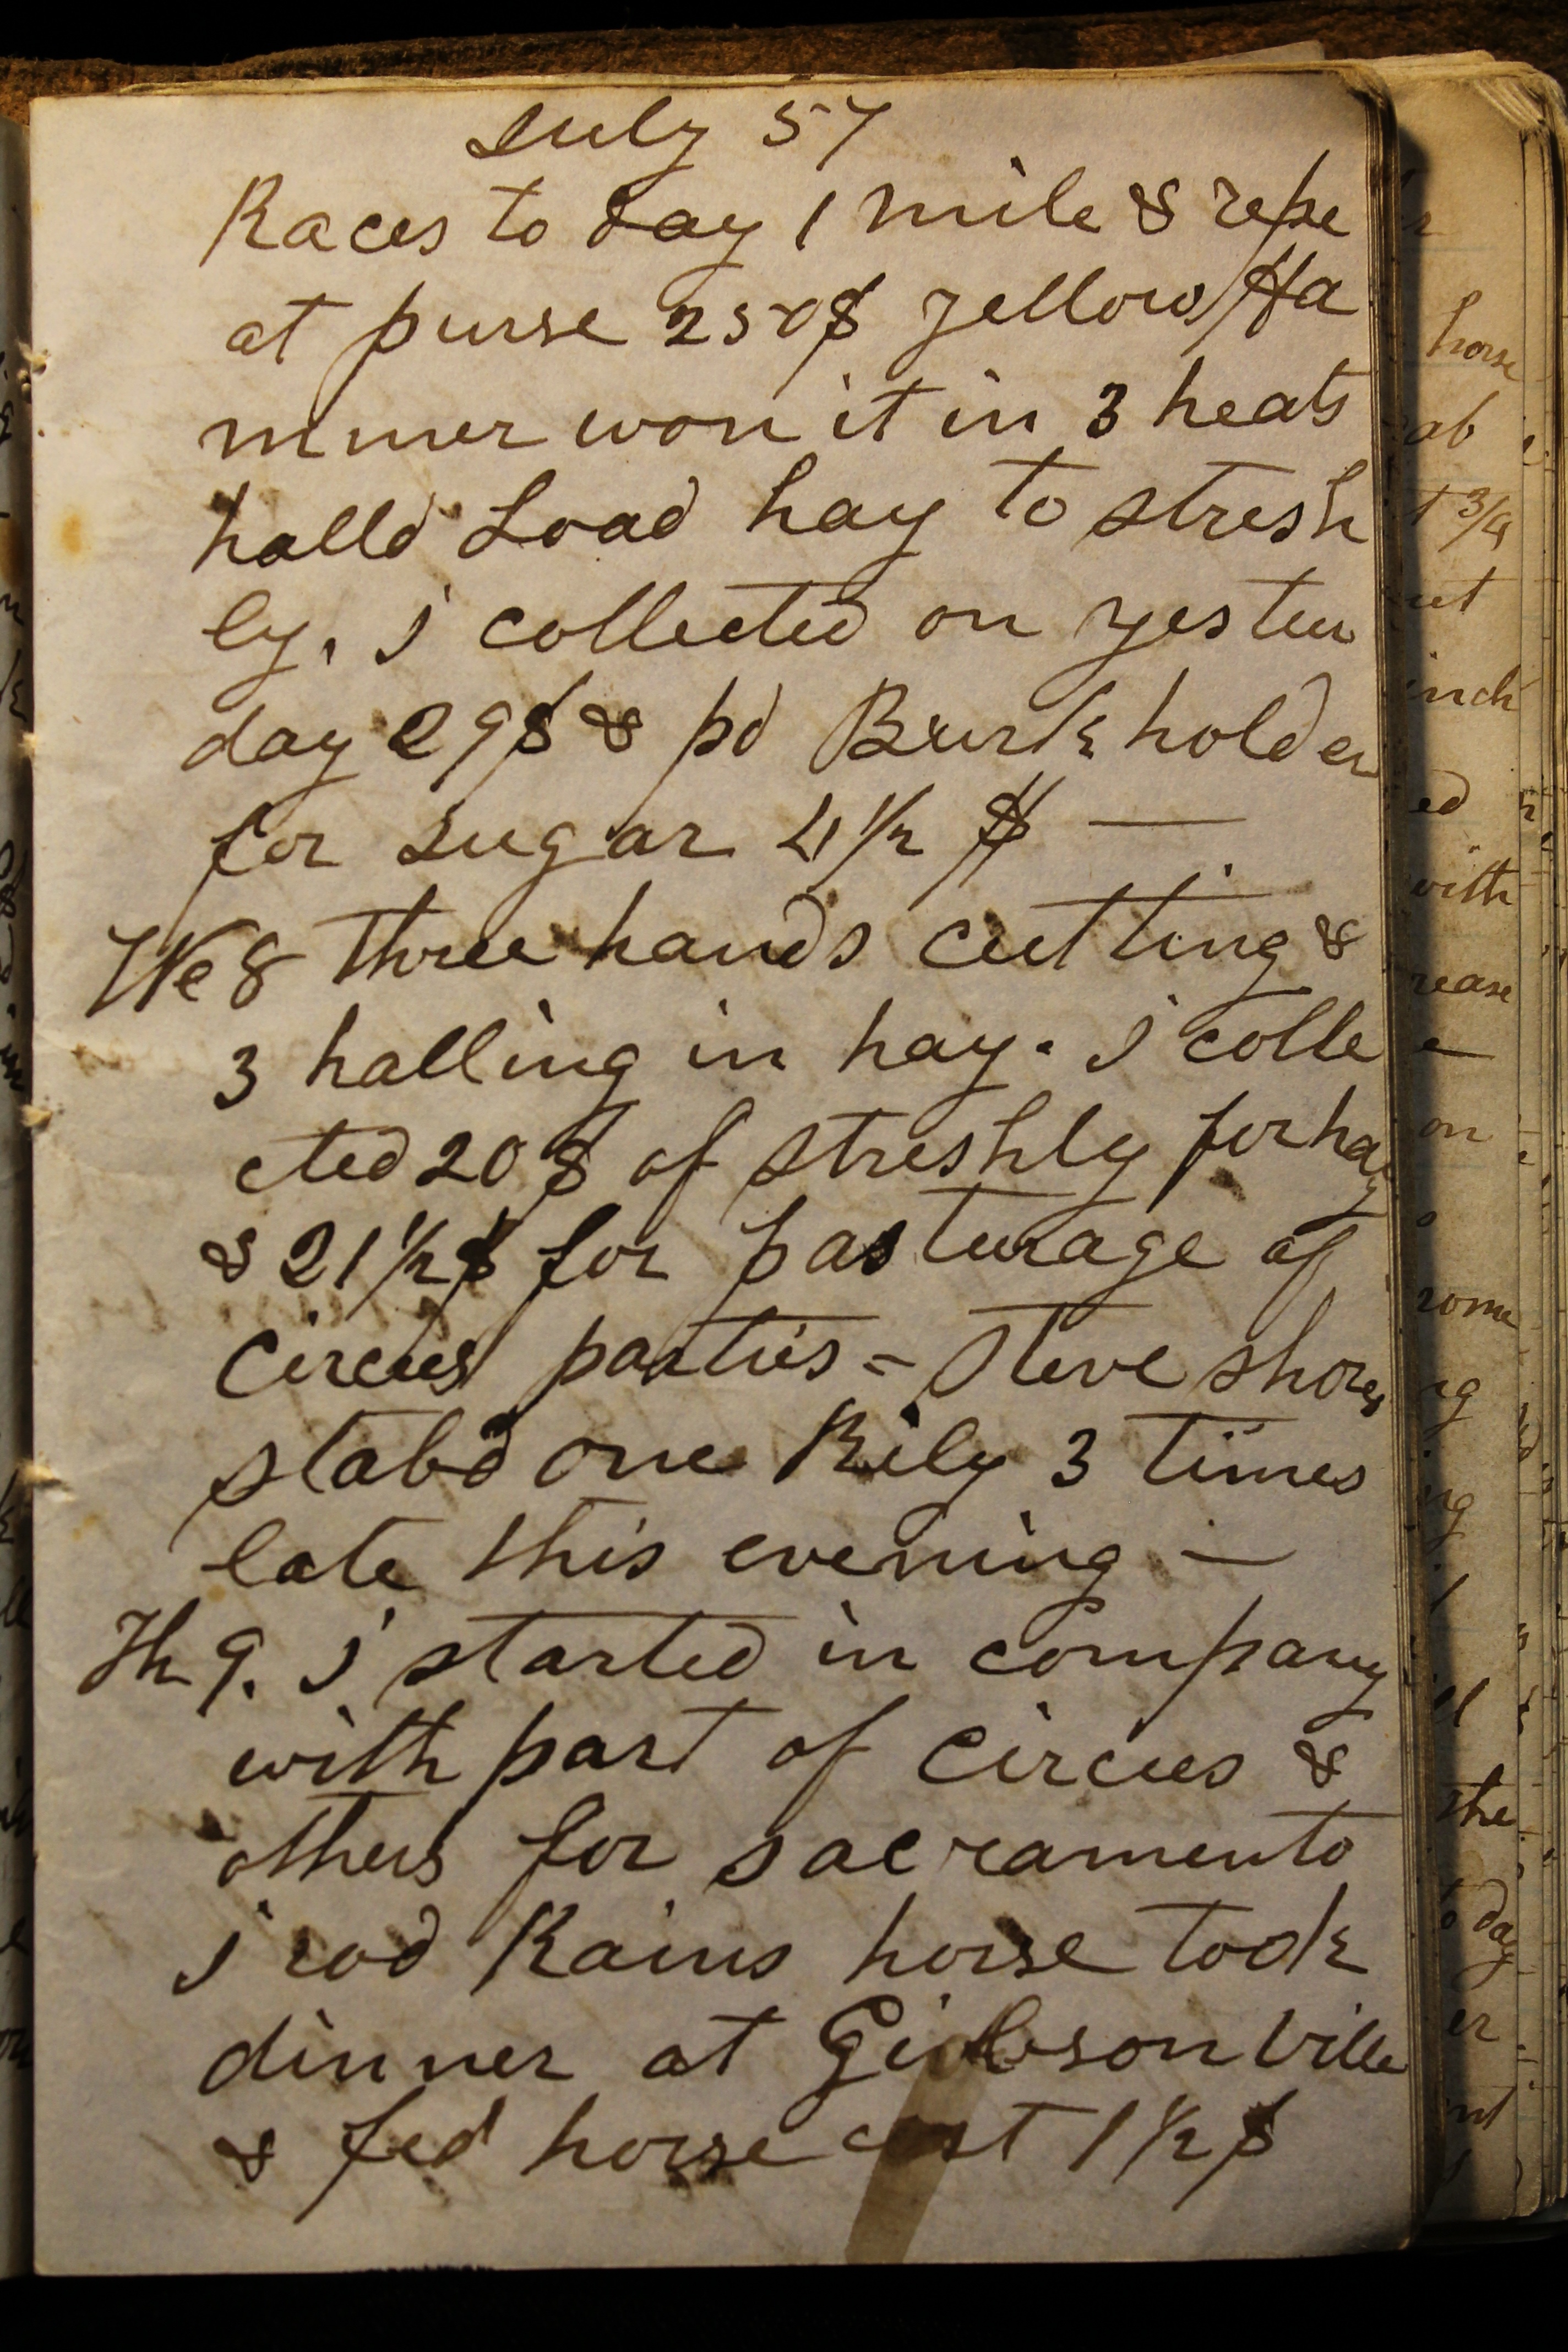 July 57
Races to day 1 mile & repe
at purse 250$ yellow Ha
mmer won it in 3 heats
halld Load hay to stresh
ly. i collected on yester
day 29$ & pd Burkholder
for sugar 4 1/2 $ —
We 8 three hands cutting &
3 halling in hay. i colle
cted 20$ of streshly for hay
& 21 1/2 $ for pasturage of
Circus parties = Steve shores
stabd one Rily 3 times
late this evening —
Th 9. i started in company
with part of Circus &
others for sacramento
i rod Rains horse took
dinner at Gibsonville
& fed horse cost 1 1/2 $
horse
ab
3/4
inch
ed
with
on
the
day
er